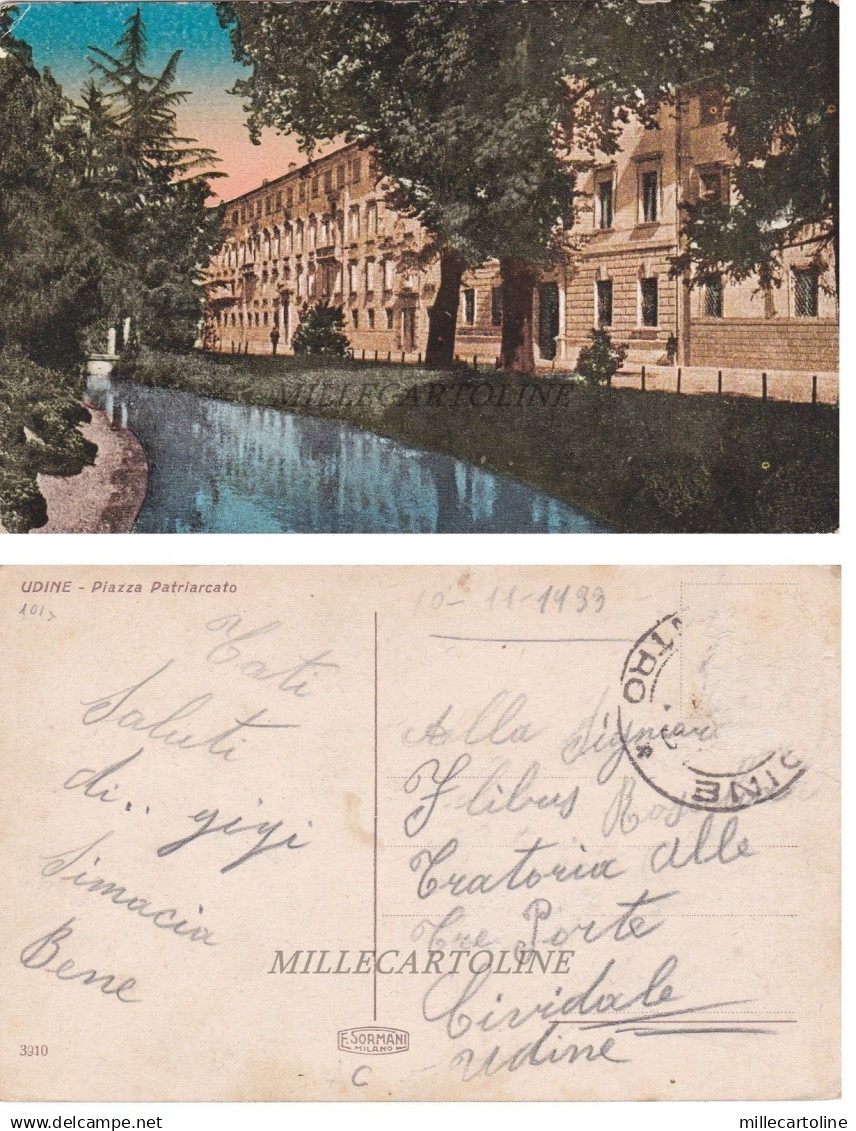 MILLECARTOLINE
UDINE - Piazza Patriarcato
Tati
Saluti
di.. gigi
Simacia
Bene
3910
10-11-1933
UDINE
Alla
Flibus
Tratoria alle
Tre Porte
Cividale
Udine
MILLECARTOLINE
F. SORMANI
MILANO
C
delcampe.net
millecartoline